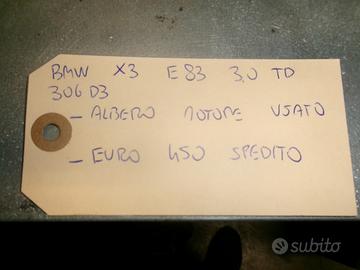 BMW X3 E83 3.0 TD
306D3
- ALBERO MOTORE USATO
- EURO 450 SPEDITO
subito